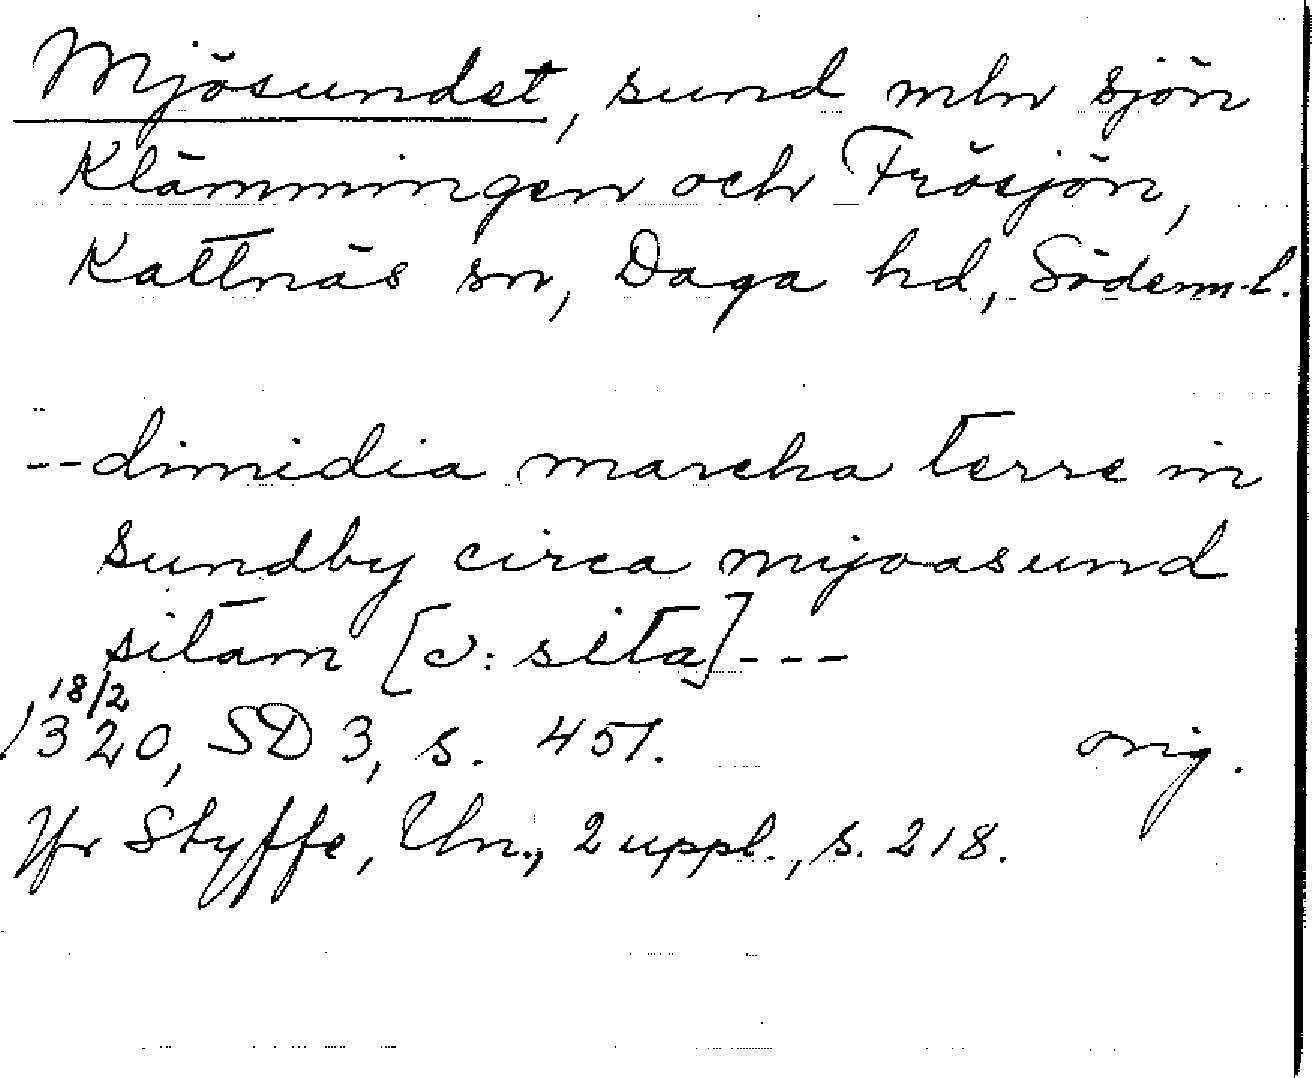 Mjösundet, sund mln sjön
Klämmingen och Frösjön,
Kattnäs sn, Daga hd, Söderm.l.
--dimidia marcha terre in
sundby circa mijoasund
sitam [ɔ: sita]---
18/2
1320, SD 3, s. 451. orig.
Jfr Styffe, Un., 2 uppl., s. 218.